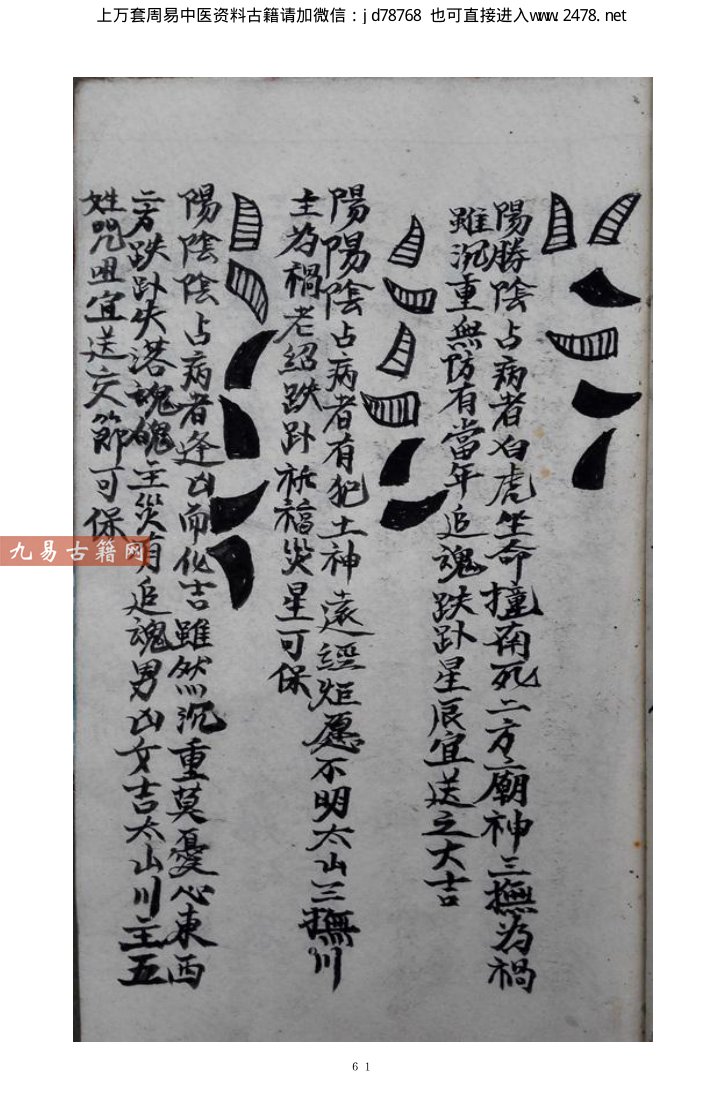 上万套周易中医资料古籍请加微信：jd78768 也可直接进入www.2478.net
陽勝陰占病者白虎坐命撞南死二方廟神三撫為禍
雖沉重無防有當年追魂跌卦星辰宜送之大吉
陽陽陰占病者有犯土神遠經炬愿不明太山三撫川
主為禍老紹跌卦祈福災星可保
陽陰陰占病者逢凶而化吉雖然沉重莫憂心東西
二方跌卦失落魂魄主災有追魂男凶女吉太山川主五
姓咒咀宜送交節可保
九易古籍网
61